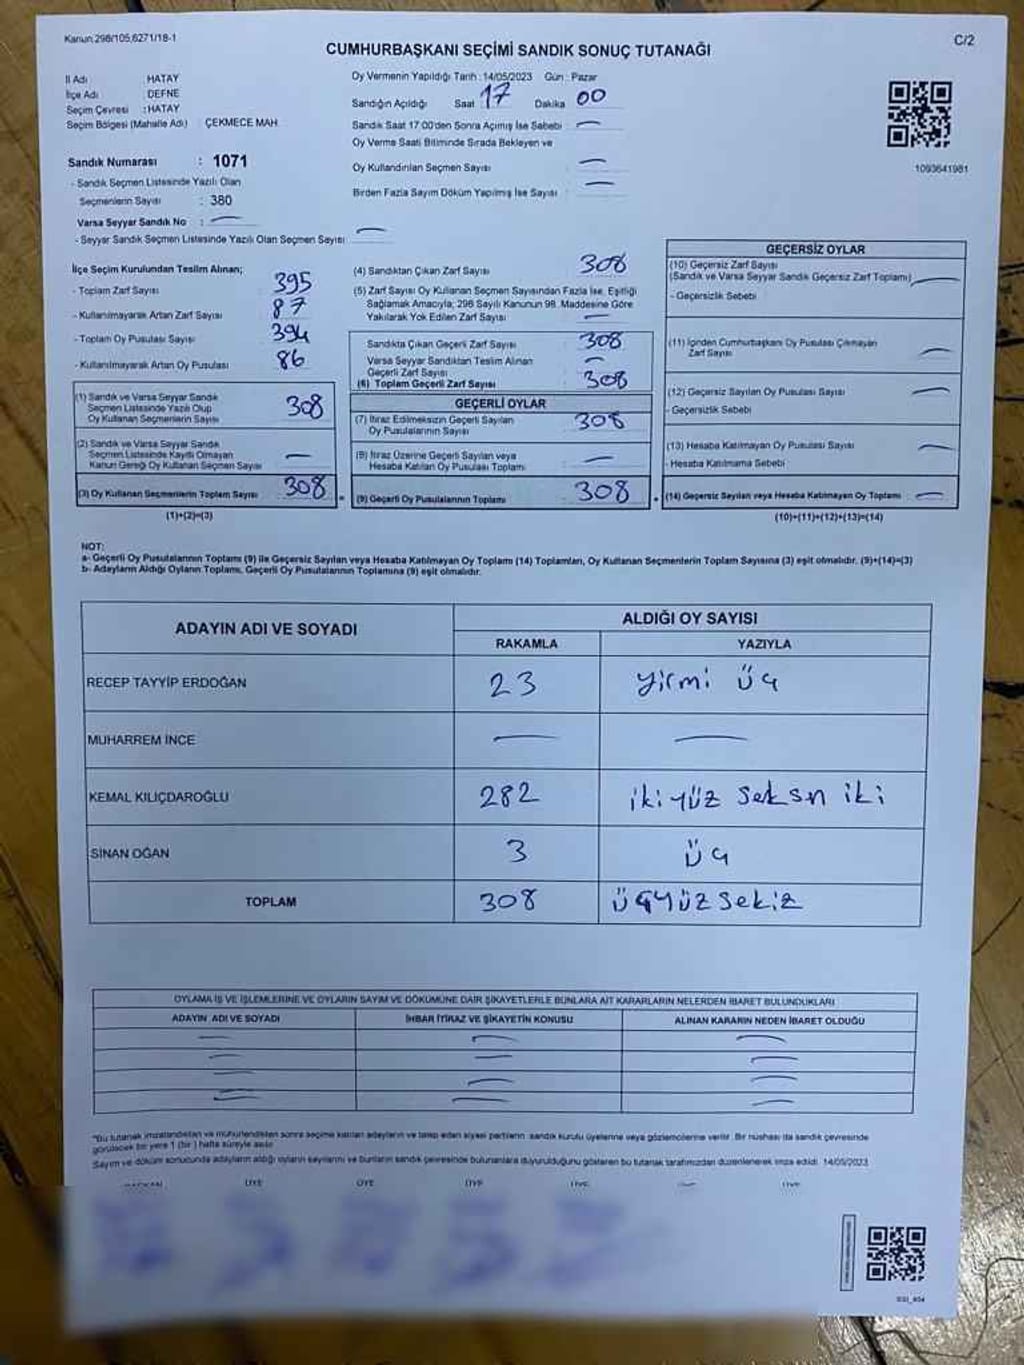 Kanun:298/105,6271/18-1
C/2
CUMHURBAŞKANI SEÇİMİ SANDIK SONUÇ TUTANAĞI
İl Adı : HATAY
İlçe Adı : DEFNE
Seçim Çevresi : HATAY
Seçim Bölgesi (Mahalle Adı) ÇEKMECE MAH.
Oy Vermenin Yapıldığı Tarih : 14/05/2023 Gün : Pazar
Sandığın Açıldığı Saat : 17 Dakika 00
Sandık Saat 17:00'den Sonra Açılmış İse Sebebi : —
Oy Verme Saati Bitiminde Sırada Bekleyen ve
Oy Kullandırılan Seçmen Sayısı —
Birden Fazla Sayım Döküm Yapılmış İse Sayısı : —
1093641981
Sandık Numarası : 1071
- Sandık Seçmen Listesinde Yazılı Olan
Seçmenlerin Sayısı : 380
Varsa Seyyar Sandık No : —
- Seyyar Sandık Seçmen Listesinde Yazılı Olan Seçmen Sayısı : —
İlçe Seçim Kurulundan Teslim Alınan;
- Toplam Zarf Sayısı 395
- Kullanılmayarak Artan Zarf Sayısı 87
- Toplam Oy Pusulası Sayısı 394
- Kullanılmayarak Artan Oy Pusulası 86
(1) Sandık ve Varsa Seyyar Sandık
Seçmen Listesinde Yazılı Olup
Oy Kullanan Seçmenlerin Sayısı 308
(2) Sandık ve Varsa Seyyar Sandık
Seçmen Listesinde Kayıtlı Olmayan
Kanun Gereği Oy Kullanan Seçmen Sayısı —
(3) Oy Kullanan Seçmenlerin Toplam Sayısı 308
(1)+(2)=(3)
(4) Sandıktan Çıkan Zarf Sayısı 308
(5) Zarf Sayısı Oy Kullanan Seçmen Sayısından Fazla İse, Eşitliği
Sağlamak Amacıyla; 298 Sayılı Kanunun 98. Maddesine Göre
Yakılarak Yok Edilen Zarf Sayısı —
Sandıkta Çıkan Geçerli Zarf Sayısı 308
Varsa Seyyar Sandıktan Teslim Alınan
Geçerli Zarf Sayısı —
(6) Toplam Geçerli Zarf Sayısı 308
GEÇERLİ OYLAR
(7) İtiraz Edilmeksizin Geçerli Sayılan
Oy Pusulalarının Sayısı 308
(8) İtiraz Üzerine Geçerli Sayılan veya
Hesaba Katılan Oy Pusulası Toplamı —
(9) Geçerli Oy Pusulalarının Toplamı 308
GEÇERSİZ OYLAR
(10) Geçersiz Zarf Sayısı
(Sandık ve Varsa Seyyar Sandık Geçersiz Zarf Toplamı) —
- Geçersizlik Sebebi
(11) İçinden Cumhurbaşkanı Oy Pusulası Çıkmayan
Zarf Sayısı —
(12) Geçersiz Sayılan Oy Pusulası Sayısı —
- Geçersizlik Sebebi
(13) Hesaba Katılmayan Oy Pusulası Sayısı —
- Hesaba Katılmama Sebebi
(14) Geçersiz Sayılan veya Hesaba Katılmayan Oy Toplamı : —
(10)+(11)+(12)+(13)=(14)
NOT:
a- Geçerli Oy Pusulalarının Toplamı (9) ile Geçersiz Sayılan veya Hesaba Katılmayan Oy Toplamı (14) Toplamları, Oy Kullanan Seçmenlerin Toplam Sayısına (3) eşit olmalıdır. (9)+(14)=(3)
b- Adayların Aldığı Oyların Toplamı, Geçerli Oy Pusulalarının Toplamına (9) eşit olmalıdır.
ADAYIN ADI VE SOYADI ALDIĞI OY SAYISI
RAKAMLA YAZIYLA
RECEP TAYYİP ERDOĞAN 23 yirmi üç
MUHARREM İNCE — —
KEMAL KILIÇDAROĞLU 282 iki yüz seksn iki
SİNAN OĞAN 3 üç
TOPLAM 308 üçyüz sekiz
OYLAMA İŞ VE İŞLEMLERİNE VE OYLARIN SAYIM VE DÖKÜMÜNE DAİR ŞİKAYETLERLE BUNLARA AİT KARARLARIN NELERDEN İBARET BULUNDUKLARI
ADAYIN ADI VE SOYADI İHBAR İTİRAZ VE ŞİKAYETİN KONUSU ALINAN KARARIN NEDEN İBARET OLDUĞU
— — —
— — —
— — —
— — —
*Bu tutanak imzalandıktan ve mühürlendikten sonra seçime katılan adayların ve talep eden siyasi partilerin sandık kurulu üyelerine veya gözlemcilerine verilir. Bir nüshası da sandık çevresinde
görülecek bir yere 1 (bir) hafta süreyle asılır.
Sayım ve döküm sonucunda adayların aldığı oyların sayılarını ve bunların sandık çevresinde bulunanlara duyurulduğunu gösteren bu tutanak tarafımızdan düzenlenerek imza edildi. 14/05/2023
BAŞKAN ÜYE ÜYE ÜYE ÜYE ÜYE